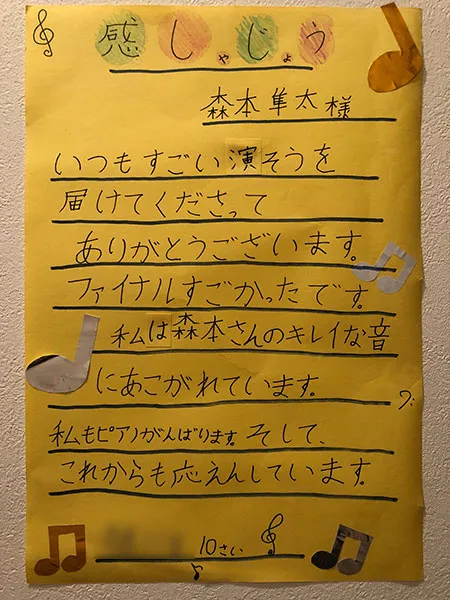 感しゃじょう
森本隼太様
いつもすごい演そうを
届けてくださって
ありがとうございます。
ファイナルすごかったです。
私は森本さんのキレイな音
にあこがれています。
私もピアノがんばります。そして、
これからも応えんしています。
10さい